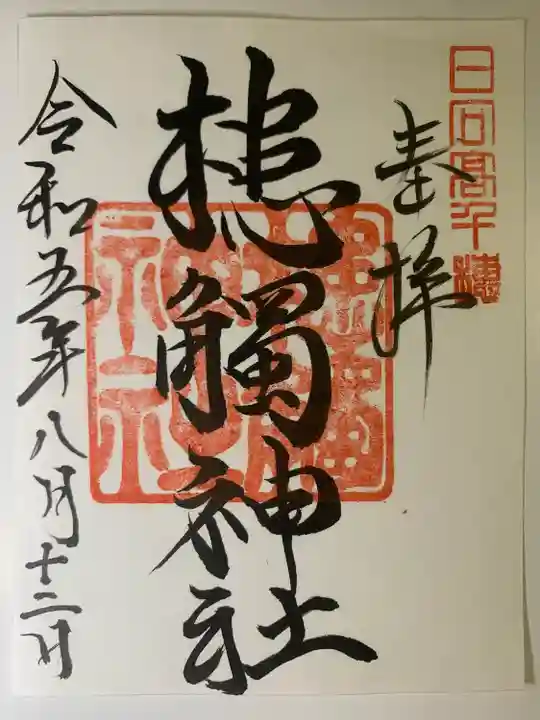 日向高千穂
奉拝
槵觸神社
令和五年八月十二日
槵觸神社